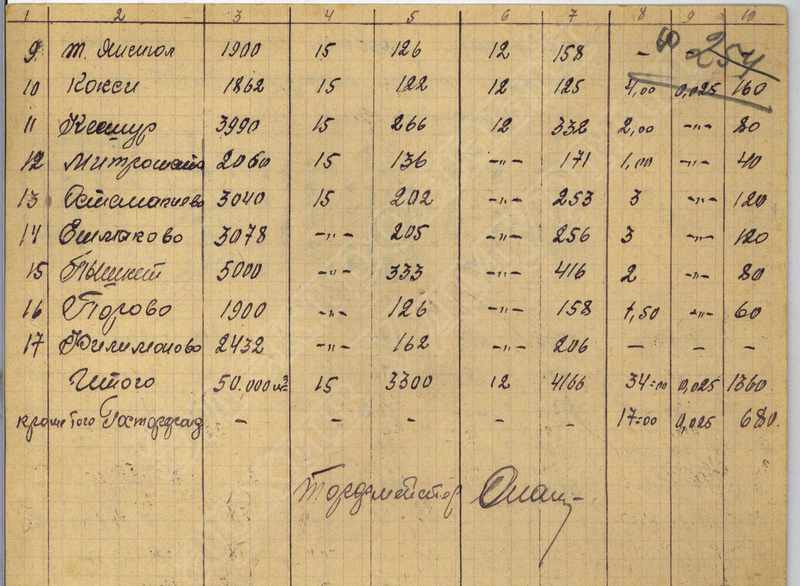 1 2 3 4 5 6 7 8 9 10
254
9 1900 15 126 12 158 -
10 Кокси 1862 15 122 12 125 4,00 0,025 160
11 Кешур 3990 15 266 12 332 2,00 -"- 80
12 2060 15 136 -"- 171 1,00 -"- 40
13 3040 15 202 -"- 253 3 -"- 120
14 Ешмаково 3078 -"- 205 -"- 256 3 -"- 120
15 Пышкет 5000 -"- 333 -"- 416 2 -"- 80
16 Порово 1900 -"- 126 -"- 158 1,50 -"- 60
17 Филимоново 2432 -"- 162 -"- 206 - - -
Итого 50.000 м² 15 3300 12 4166 34=00 0,025 1360
кроме того - - - - - 17=00 0,025 680.
Торфмейстер